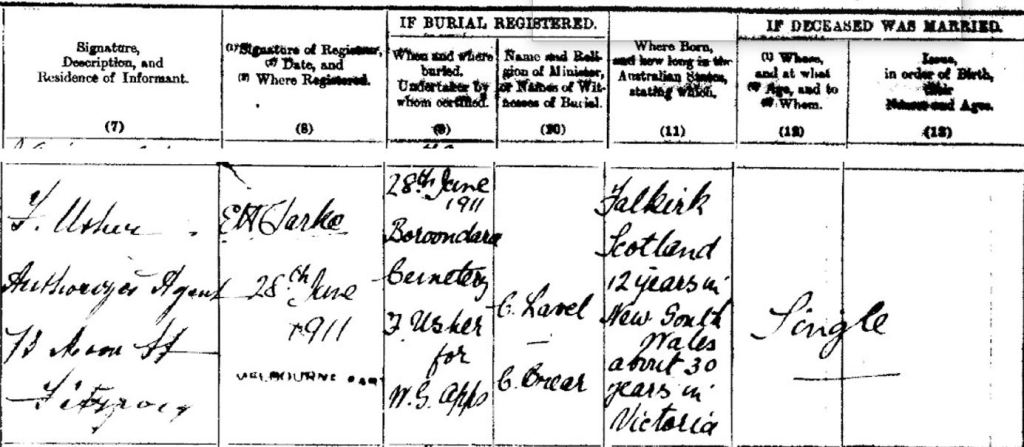 IF BURIAL REGISTERED.
IF DECEASED WAS MARRIED.
Signature,
Description, and
Residence of Informant.
(7)
(1) Signature of Registrar,
(2) Date, and
(3) Where Registered.
(8)
When and where
buried.
Undertaker by
whom certified.
(9)
Name and Reli-
gion of Minister,
or Names of Wit-
nesses of Burial.
(10)
Where Born,
and how long in the
Australian States,
stating which.
(11)
(1) Where,
and at what
(2) Age, and to
(3) Whom.
(12)
Issue,
in order of Birth,
their
Names and Ages.
(13)
F. Usher
Authorized Agent
Moor St
Fitzroy
28th June
1911
MELBOURNE EAST
28th June
1911
Boroondara
Cemetery
F Usher
for
W.G. Apps
C. Lavel
C.
Falkirk
Scotland
12 years in
New South
Wales
about 30
years in
Victoria
Single